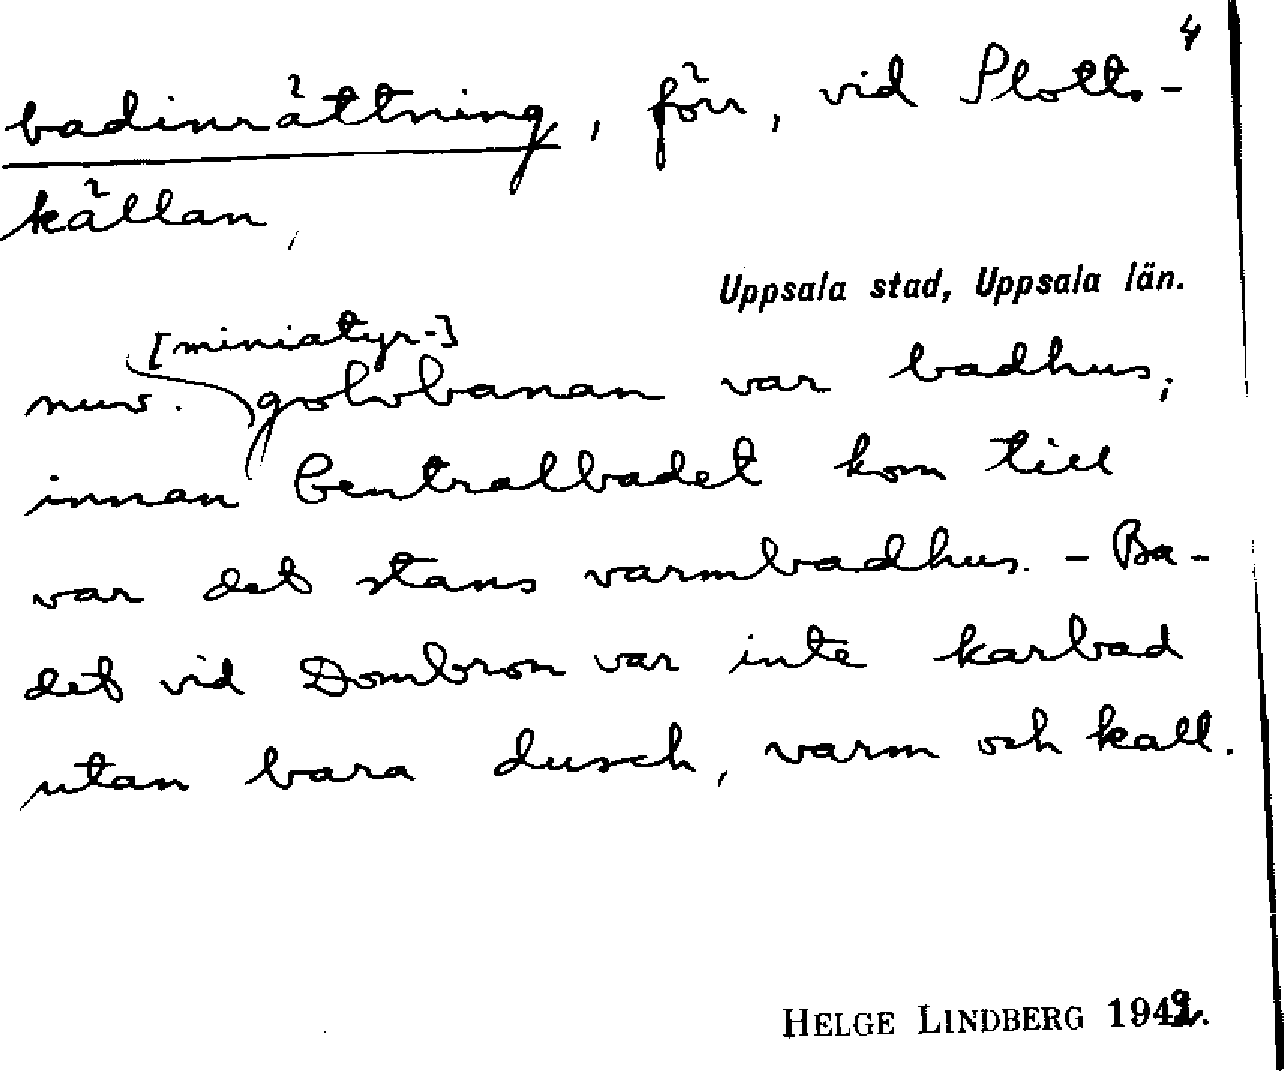 4
badinrättning, förr, vid Slotts-
källan,
Uppsala stad, Uppsala län.
[miniatyr-]
nuv. golvbanan var badhus;
innan Centralbadet kom till
var det stans varmbadhus. - Ba-
det vid Dombron var inte karbad
utan bara dusch, varm och kall.
HELGE LINDBERG